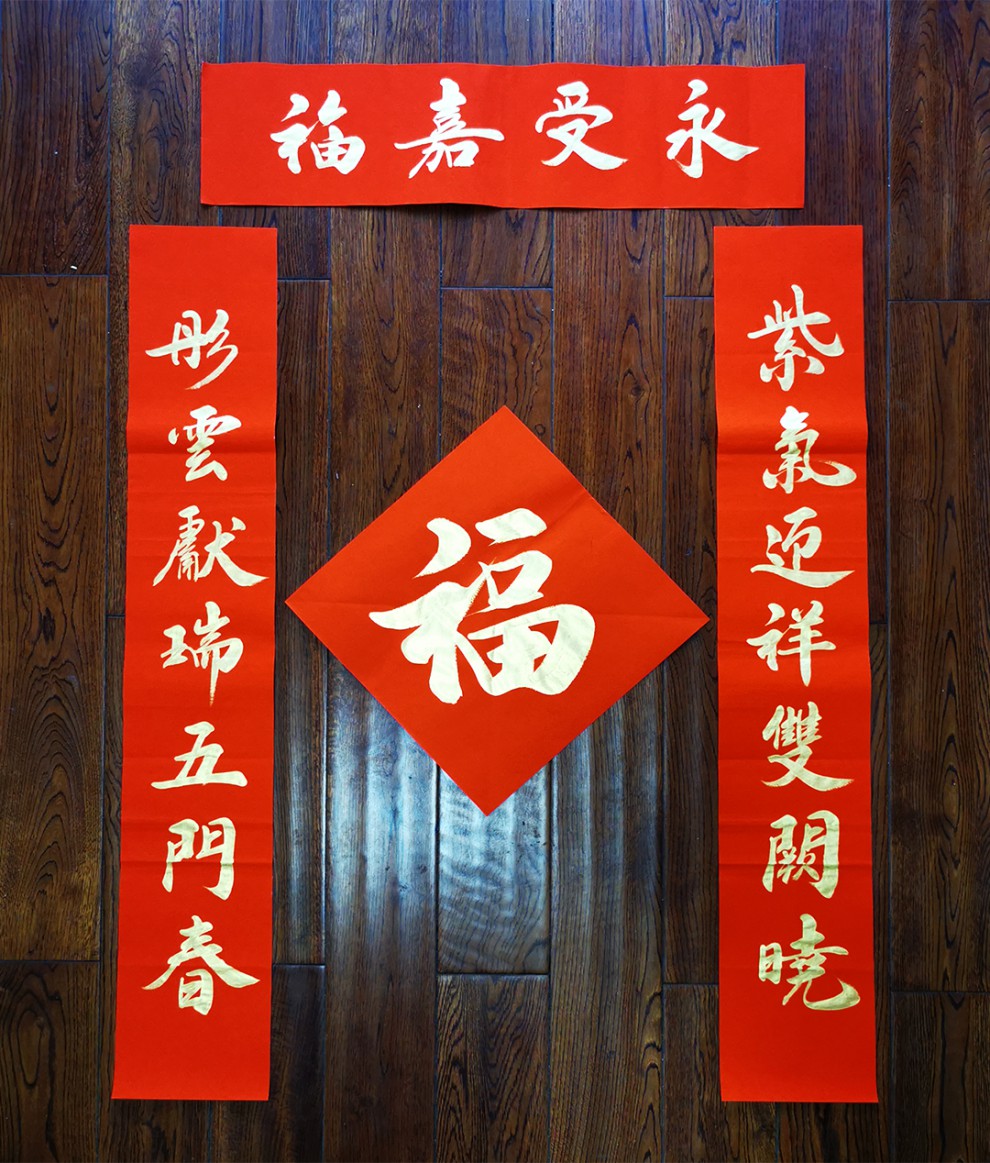 永受嘉福
紫氣迎祥雙闕曉
彤雲獻瑞五門春
福